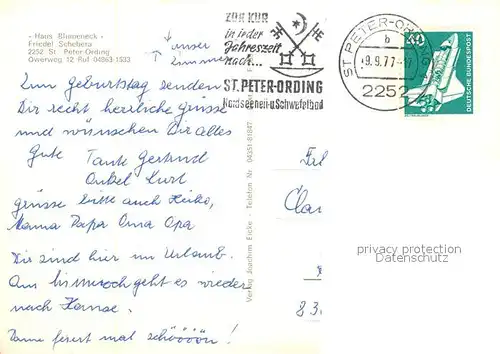 - Haus Blumeneck -
Friedel Schebera
2252 St Peter-Ording
Ulwerweg 12 Ruf 04863-1533
↑ unser
Zimmer
ZUR KUR
in jeder
Jahreszeit
nach...
ST. PETER-ORDING
Nordseeheil-u Schwefelbad
ST. PETER-ORDING
b
-9.9.77-17
2252
DEUTSCHE BUNDESPOST
Zum Geburtstag senden
Dir recht herzliche Grüsse
und wünschen Dir alles
Gute Tante Gertrud
Onkel Kurt
grüsse bitte auch Heiko,
Mama Papa Oma Opa
Wir sind hier im Urlaub.
Am geht es wieder
nach Hause.
Dann feiert mal schööön!
Verlag Joachim Eicke - Telefon Nr. 04351-81847
privacy protection
Datenschutz